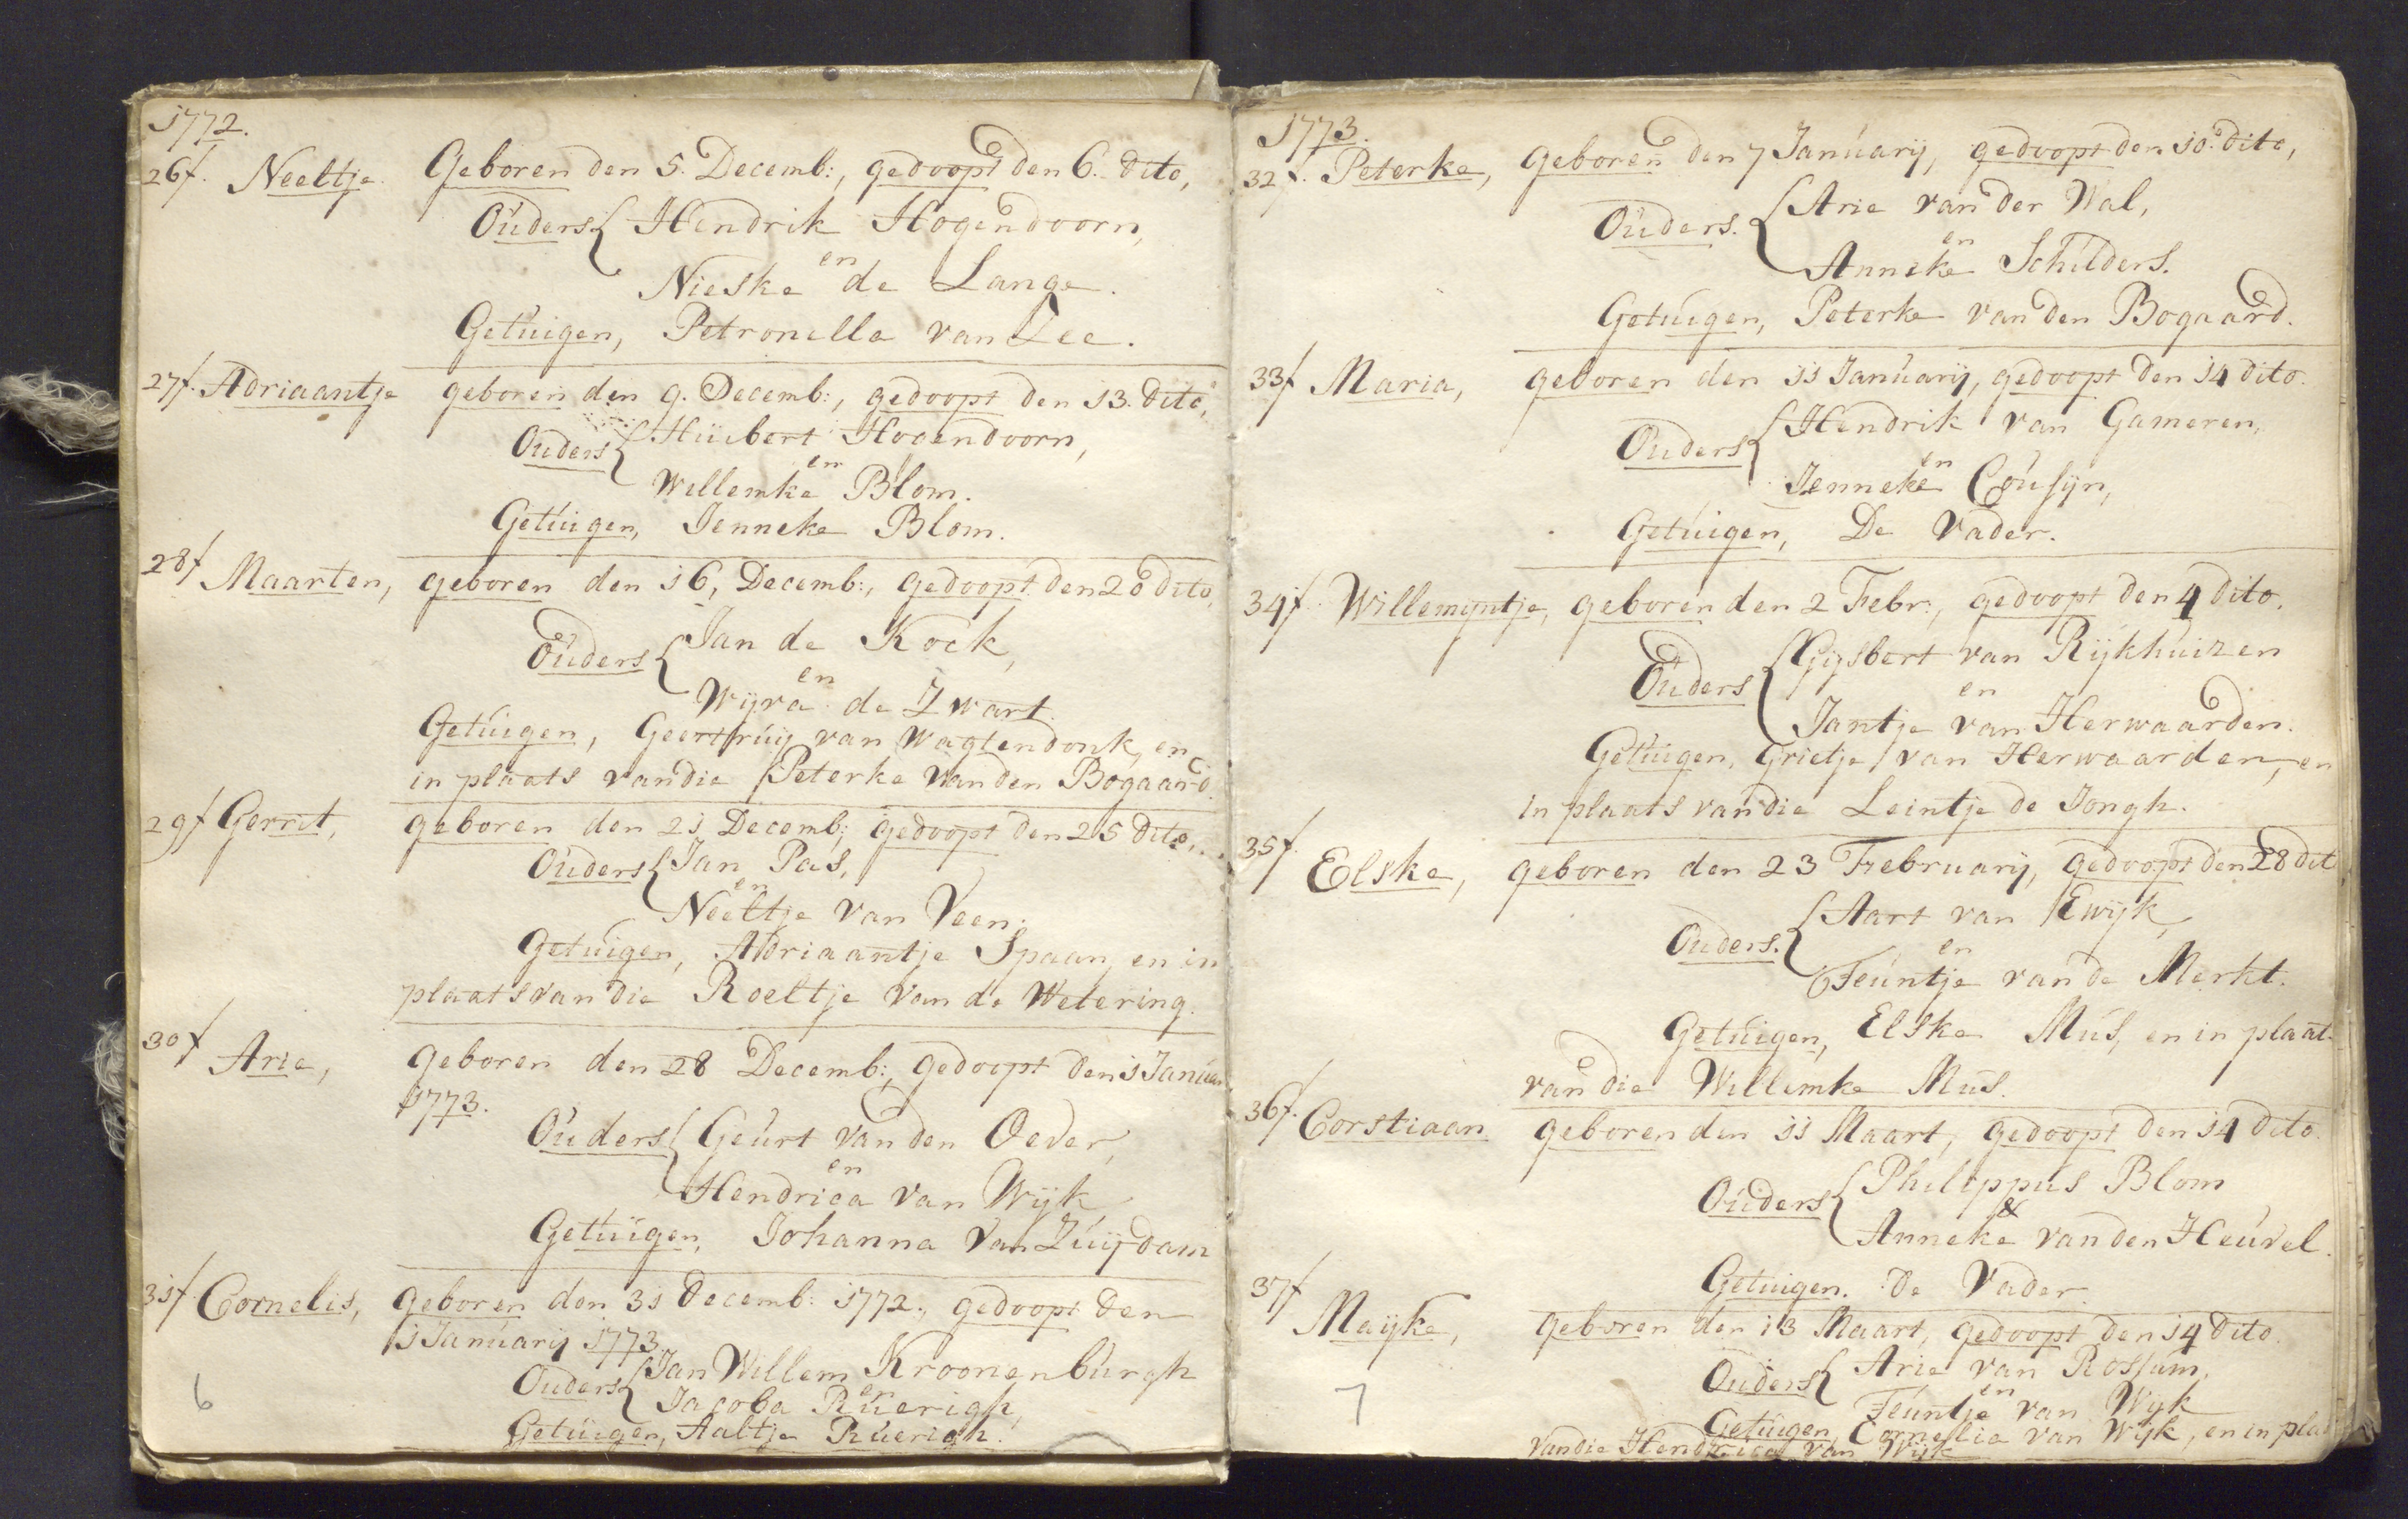 1772.
26 f. Neeltje. Geboren den 5. Decemb:, gedoopt den 6. dito,
Ouders { Hendrik Hogendoorn,
en
Nieske de Lange.
Getuigen, Petronella van Lee.
27 f. Adriaantje geboren den 9. Decemb:, gedoopt den 13. dito,
Ouders { Huibert Hogendoorn,
en
Willemke Blom.
Getuigen, Jenneke Blom.
28 f Maarten, geboren den 16, Decemb:, gedoopt den 20 dito,
Ouders { Jan de Kock,
en
Wijva de Zwart.
Getuigen, Geertruij van Wagtendonk, en
in plaats van die Peterke van den Bogaard.
29 f Gerrit, geboren den 21 Decemb:, gedoopt den 25 dito.
Ouders { Jan Pas,
en
Neeltje van Veen.
Getuigen, Adriaantje Spaan, en in
plaats van die Roeltje van de Wetering.
30 f Arie, geboren den 28 Decemb:, gedoopt den 1 Januar
1773.
Ouders { Geurt van den Oever,
en
Hendrica van Wijk,
Getuigen, Johanna van Zuijdam
31 f. Cornelis, geboren den 31 Decemb: 1772., gedoopt den
1 Januarij 1773.
Ouders { Jan Willem Kroonenburgh
en
Jacoba Ruerigh,
Getuigen, Aaltje Ruerigh.
6
1773.
32 f. Peterke, geboren den 7 Januarij, gedoopt den 10. dito,
Ouders. { Arie van der Wal,
en
Anneke Schilders.
Getuigen, Peterke van den Bogaard.
33 f Maria, geboren den 11 Januarij, gedoopt den 14 dito.
Ouders { Hendrik van Gameren,
en
Jenneke Cousijn,
Getuigen, De Vader.
34 f. Willemijntje, geboren den 2 Febr:, gedoopt den 4 dito.
Ouders { Gijsbert van Rijkhuizen
en
Jantje van Herwaarden.
Getuigen, Grietje van Herwaarden, en
in plaats van die Leintje de Jongh.
35 f. Elske, geboren den 23 Februarij, gedoopt den 28 dit
Ouders. { Aart van Ewijk,
en
Teuntje van de Merkt.
Getuigen, Elske Mus, en in plaat
van die Willemke Mus.
36 f. Corstiaan geboren den 11 Maart, gedoopt den 14 dito.
Ouders { Philippus Blom
&
Anneke van den Heuvel.
Getuigen. De Vader.
37 f Maijke, geboren den 13 Maart, gedoopt den 14 dito.
Ouders { Arie van Rossum,
en
Teuntje van Wijk
Getuigen, Cornelia van Wijk, en in plaa
van die Hendrica van Wijk
7